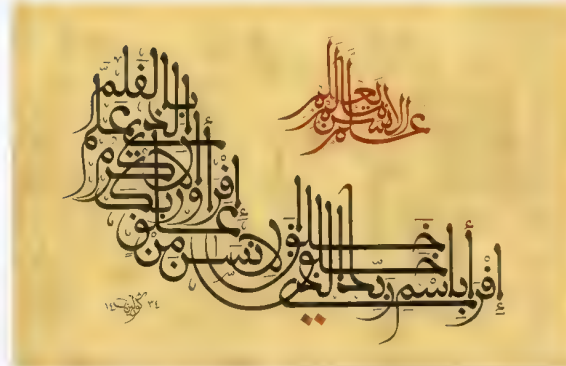 إقرأ باسم ربك الذي خلق
خلق الإنسن من علق
إقرأ وربك الأكرم
الذي علم بالقلم
علم الإنسن ما لم يعلم